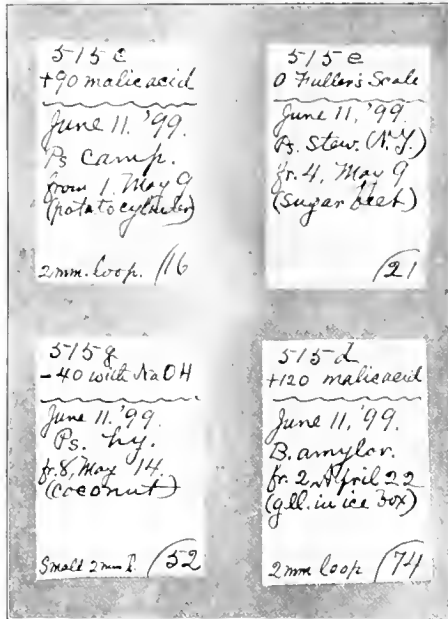 515 c
+90 malic acid
June 11. '99.
Ps camp.
from 1, May 9
(potato cylinder)
2 mm. loop. 16
515 e
0 Fuller's Scale
June 11, '99
Ps. Stew. (N.Y.)
fr. 4, May 9
(sugar beet)
21
515 g
-40 with NaOH
June 11. '99.
Ps. hy.
fr. 8, May 14.
(coconut)
Small 2 mm l. 52
515 d
+120 malic acid
June 11, '99.
B. amylov.
fr. 2, April 22
(gell. in ice box)
2 mm loop 74